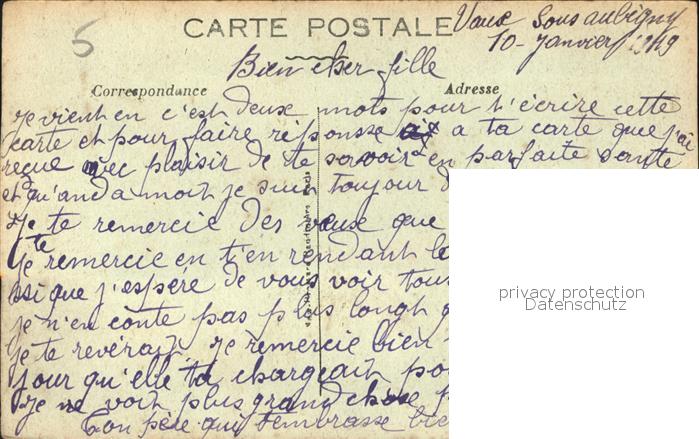 5
CARTE POSTALE
Vaux Sous aubigny
10 - Janvier 1919
Bien cher fille
Correspondance
Adresse
Je vient en c'est deux mots pour t'écrire cette
carte et pour faire réponsse a ta carte que j'ai
reçue avec plaisir de te savoir en parfaite sente
et qu'and a moit je suis toujour
Je te remercie des vœux que
Je te remercie en t'en rendant le
si que j'espére de vous voir tous
je n'en conte pas plus longh
je te revérait. Je remercie bien
jour qu'elle ta chargeait po
Je ne voit plus grand chose p
Ton pére qui t'embrasse bie
privacy protection
Datenschutz